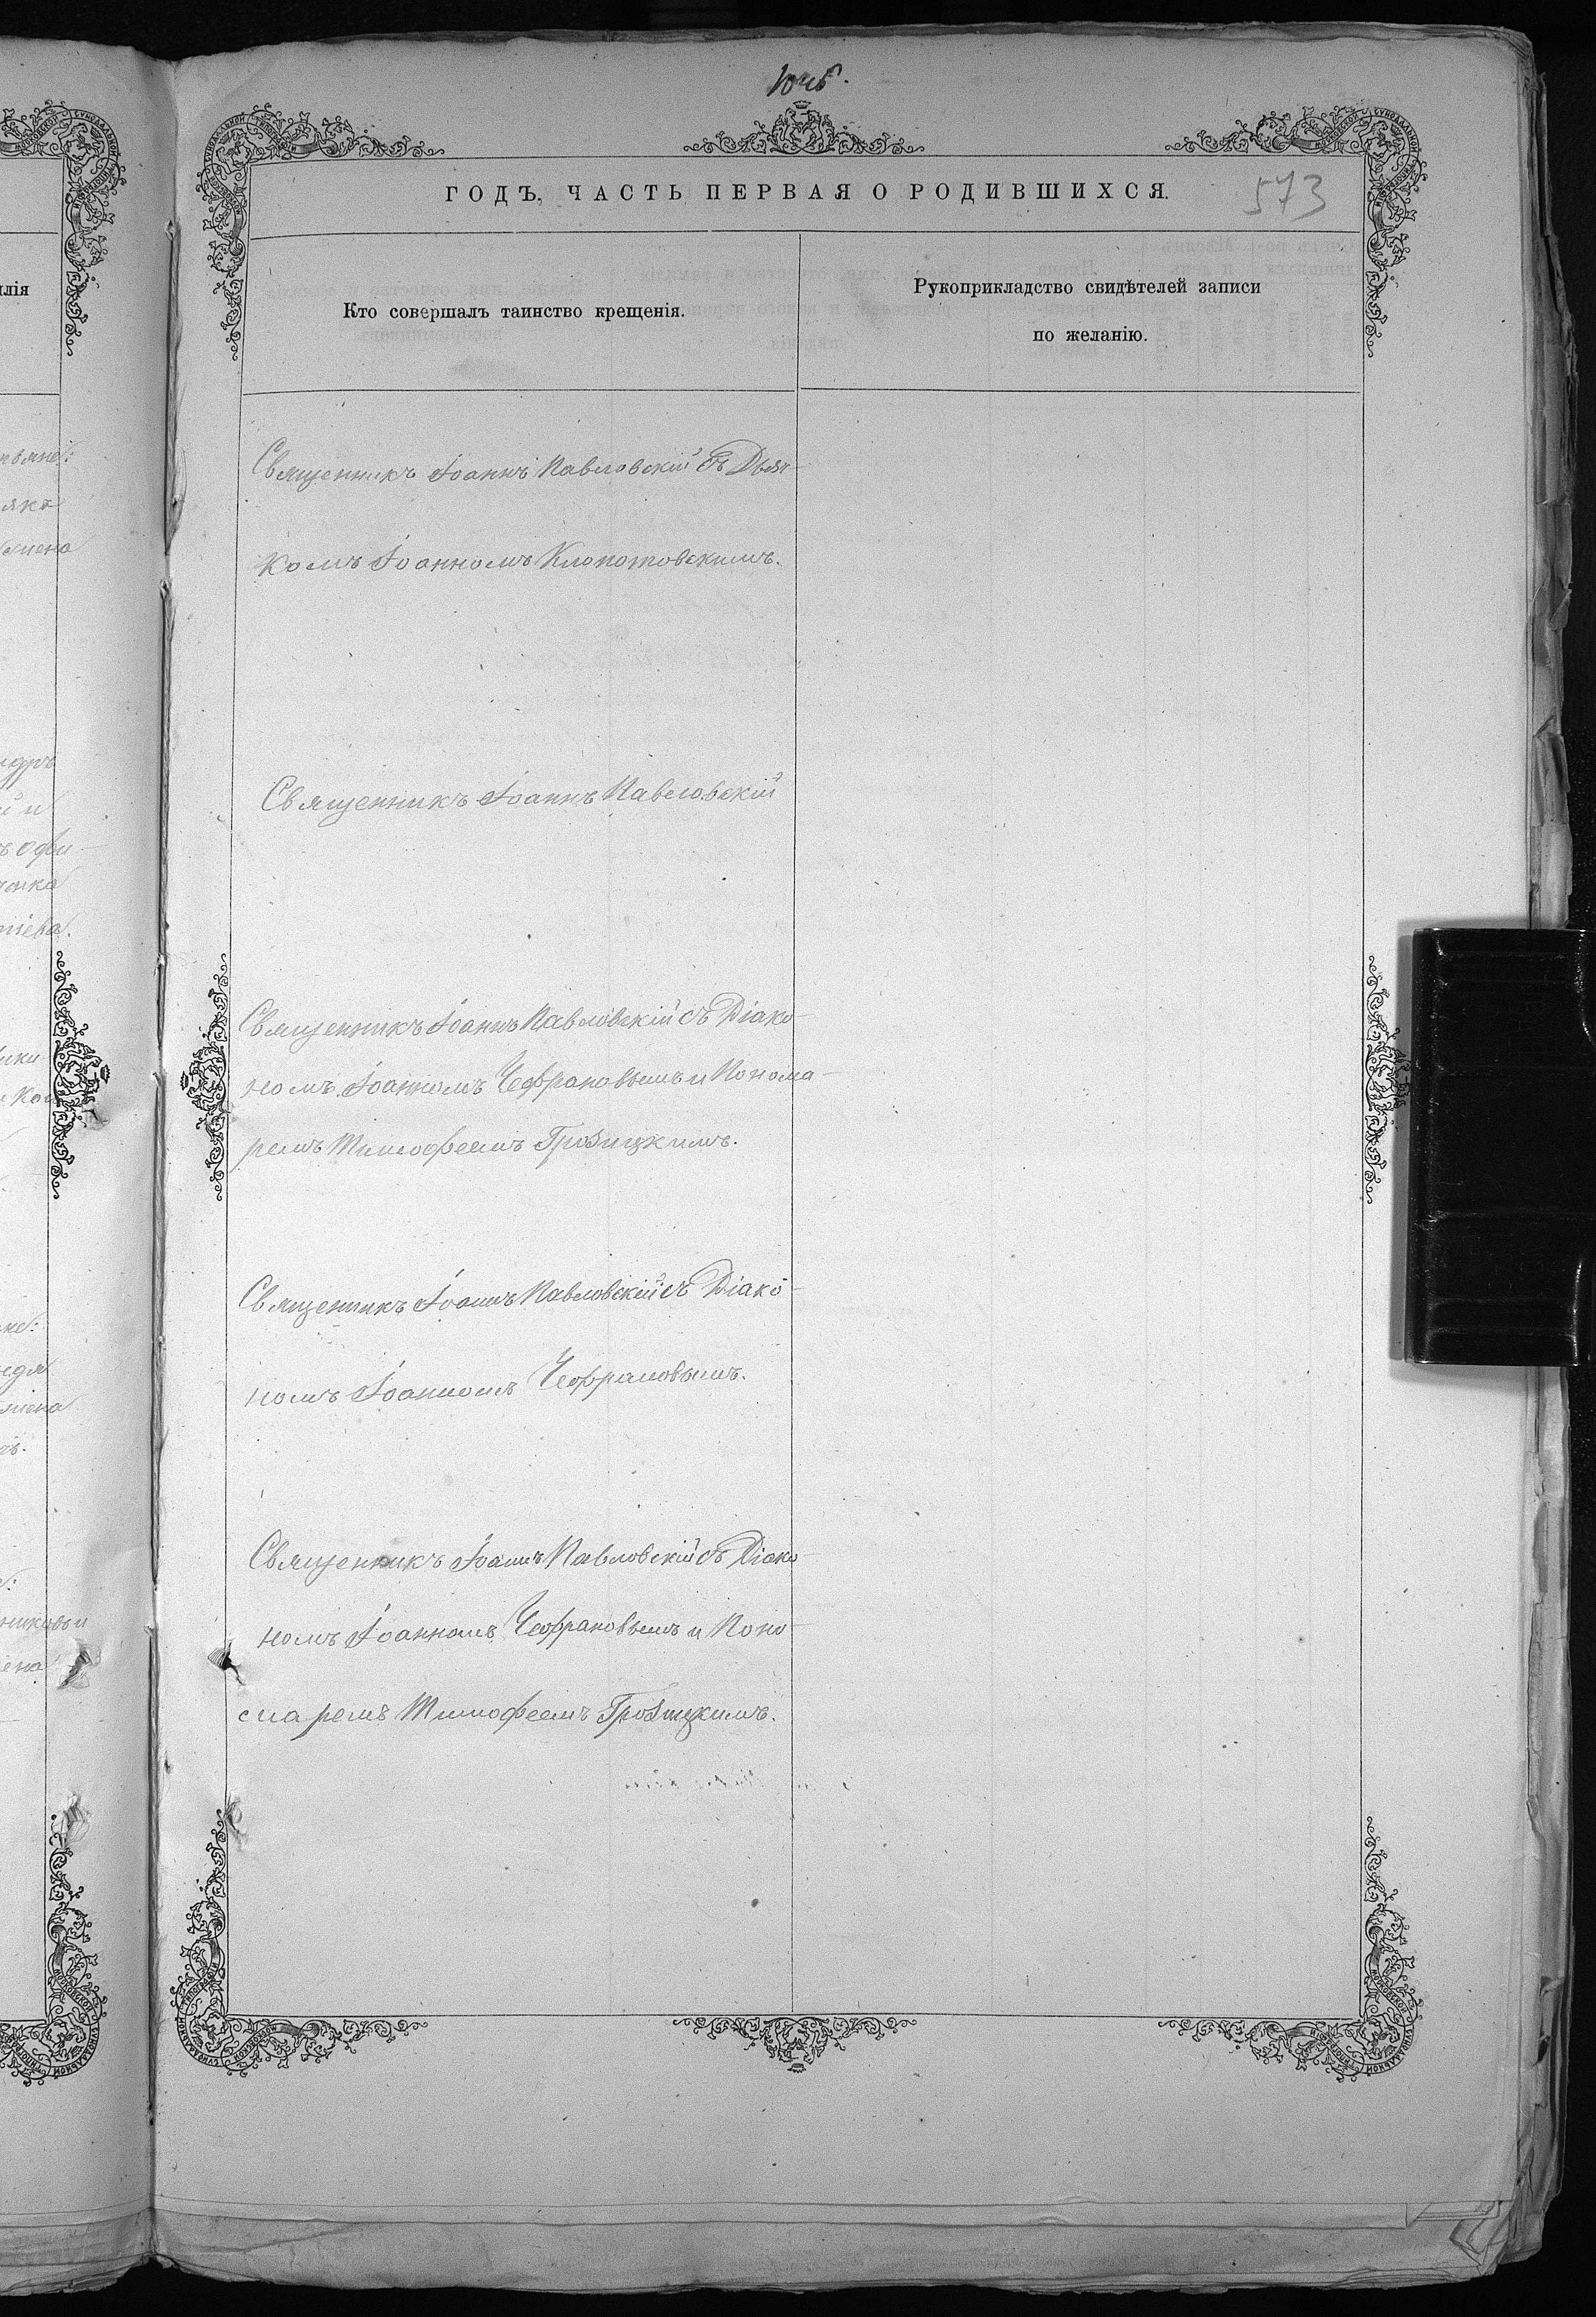 ГОДЪ, ЧАСТЬ ПЕРВАЯ О РОДИВШИХСЯ.
573
Кто совершалъ таинство крещенія.
Рукоприкладство свидѣтелей записи
по желанію.
Священникъ Іоаннъ Павловскій съ Дьяч-
комъ Іоанномъ Клопотовскимъ.
Священникъ Іоаннъ Павловскій
Священникъ Іоаннъ Павловскій съ Діако-
номъ Іоанномъ Чефрановымъ и Понома-
ремъ Тимофеемъ Грозицкимъ.
Священникъ Іоаннъ Павловскій съ Діако-
номъ Іоанномъ Чефрановымъ.
Священникъ Іоаннъ Павловскій съ Діако-
номъ Іоанномъ Чефрановымъ и Поно-
маремъ Тимофеемъ Грозицкимъ.